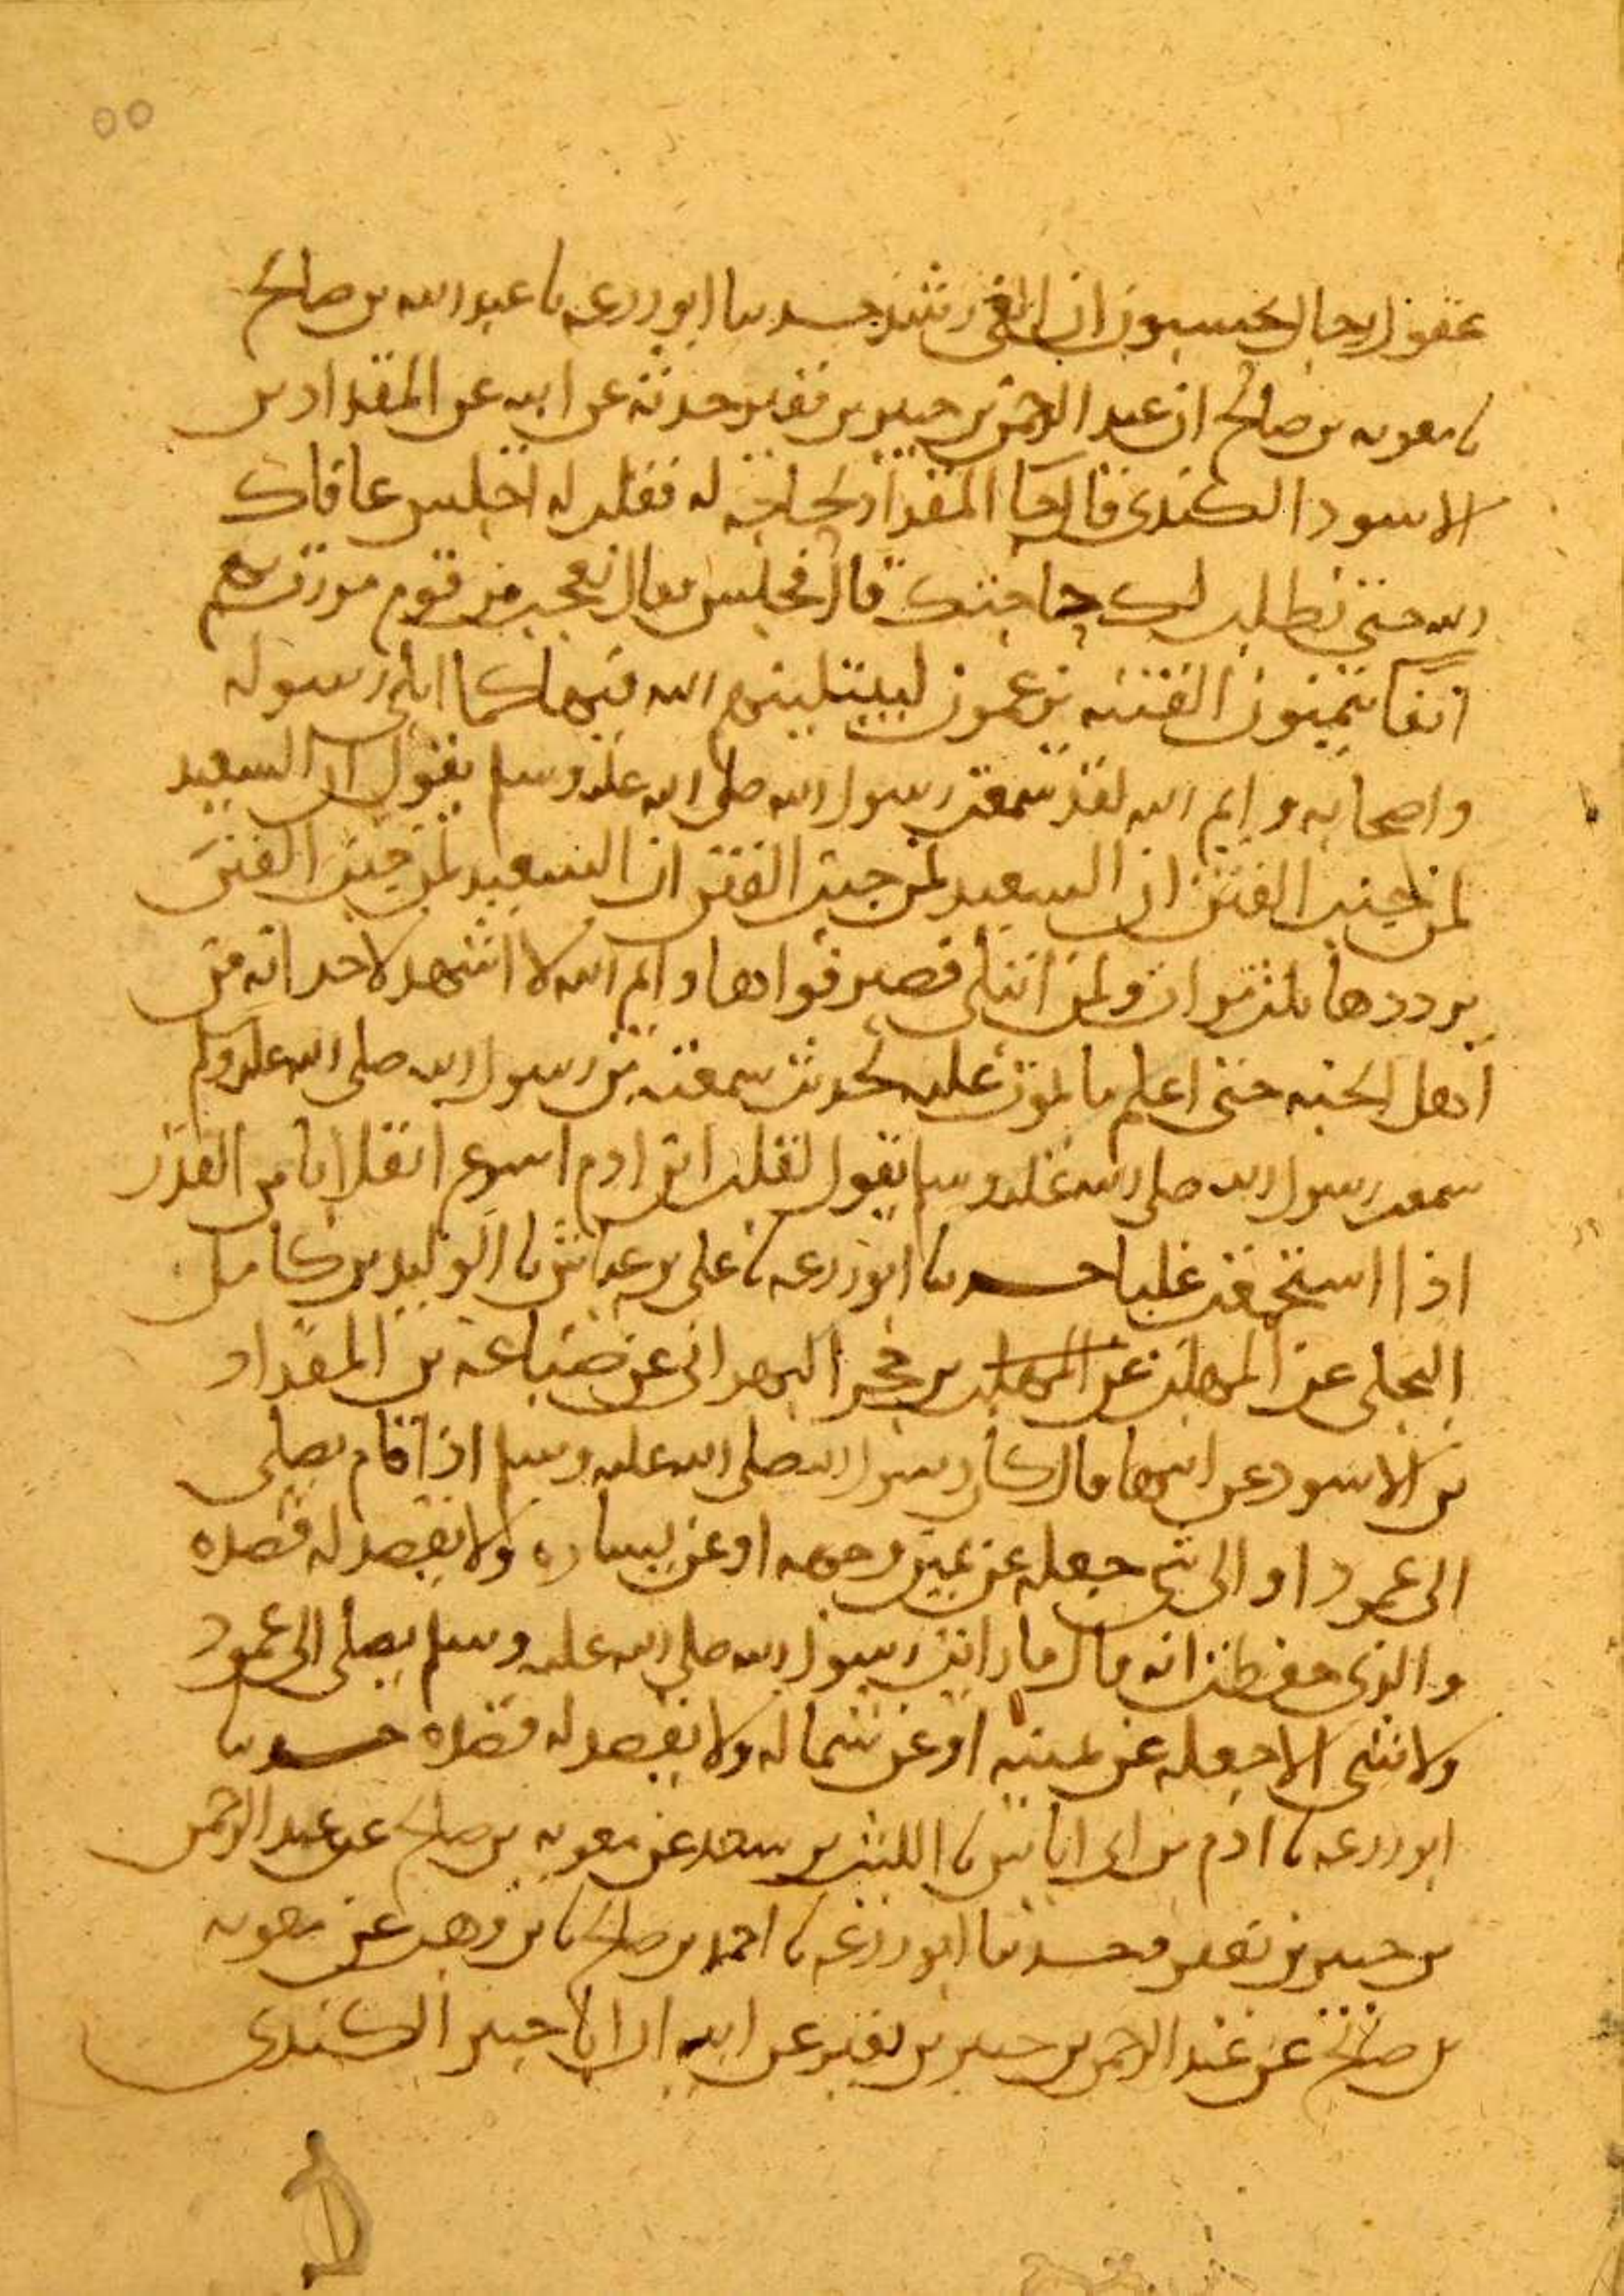 ٥٥
عقول الرجال يحسبون ان الغي رشد حدثنا ابو زرعه نا عبد الله بن صالح
نا معويه بن صالح ان عبد الرحمن بن جبير بن نفير حدثه عن ابيه عن المقداد بن
الاسود الكندي قال جانا المقداد لحاجه له فقلت له اجلس عافاك
الله حتى نطلب لك حاجتك قال فجلس فقال لعجب من قوم مررت بهم
انفا يتمنون الفتنه يزعمون ليبتلينهم الله فيها كما ابلى رسوله
واصحابه وايم الله لقد سمعت رسول الله صلى الله عليه وسلم يقول ان السعيد
لمن جنب الفتن ان السعيد لمن جنب الفتن ان السعيد لمن جنب الفتن
يرددها ثلث مرات ولمن ابتلى فصبر فواها وايم الله لا اشهد لاحد انه من
اهل الجنه حتى اعلم ما يموت عليه بحديث سمعته من رسول الله صلى الله عليه وسلم
سمعت رسول الله صلى الله عليه وسلم يقول لقلب ابن ادم اسرع انقلابا من القدر
اذا استجمعت غليا حدثنا ابو زرعه نا علي بن عياش نا الوليد بن كامل
البجلي عن المهلب عن المهلب بن حجر البهراني عن ضباعه بن المقداد
بن الاسود عن ابيها قال كان رسول الله صلى الله عليه وسلم اذا قام يصلي
الى عمود او الى شي جعله عن يمين وجهه او عن يساره ولا يقصد له قصده
والذي حفظت انه قال ما رايت رسول الله صلى الله عليه وسلم يصلي الى عمود
ولا شي الا جعله عن يمينه او عن شماله ولا يقصد له قصده حدثنا
ابو زرعه نا ادم بن ابي اياس نا الليث بن سعد عن معويه بن صالح عن عبد الرحمن
بن جبير بن نفير وحدثنا ابو زرعه نا احمد بن صالح نا بن وهب عن معويه
بن صالح عن عبد الرحمن بن جبير بن نفير عن ابيه ان ابا جبير الكندي